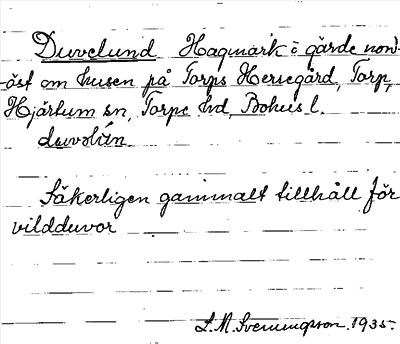 Duvelund Hagmark i gärde nord-
öst om husen på Torps Herregård, Torp,
Hjärtum sn, Torpe hd, Bohus l.
duvolún
Säkerligen gammalt tillhåll för
vildduvor
L.M. Svenungsson. 1935.